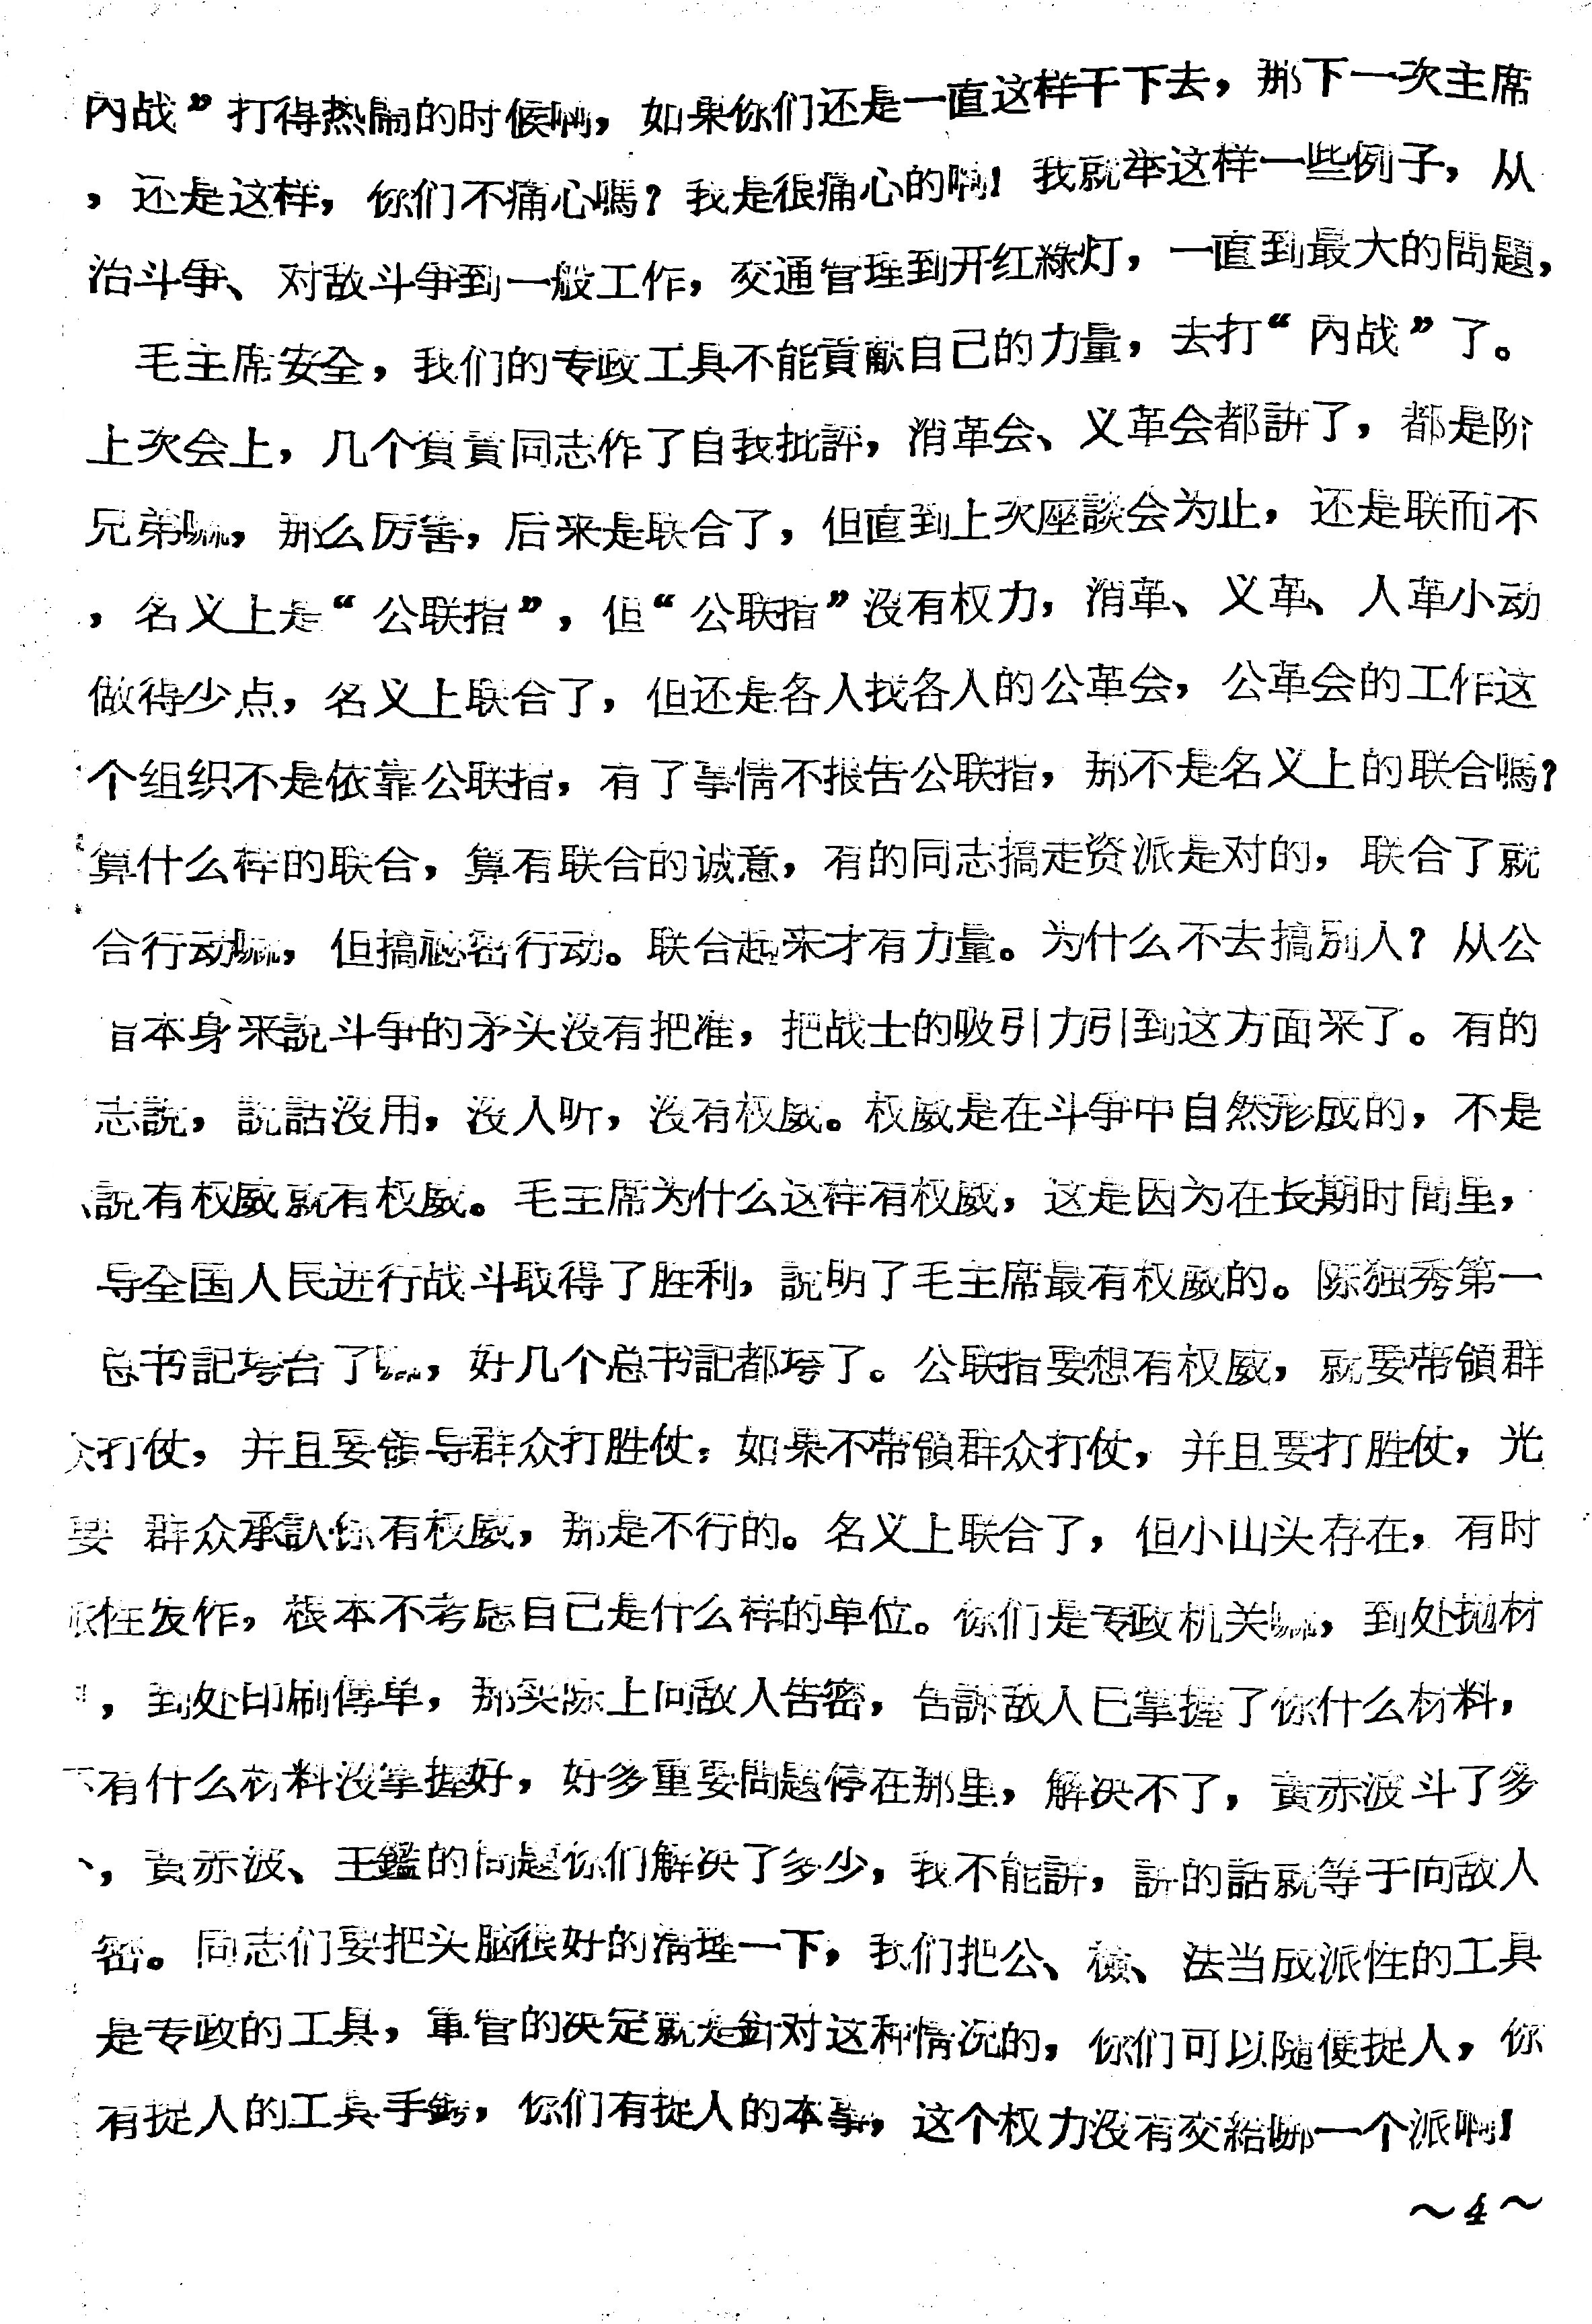 內战”打得热鬧的时候啊，如果你们还是一直这样干下去，那下一次主席
，还是这样，你们不痛心嗎？我是很痛心的啊！我就举这样一些例子，从
治斗争、对敌斗争到一般工作，交通管理到开红綠灯，一直到最大的問題，
毛主席安全，我们的专政工具不能貢献自己的力量，去打“內战”了。
上次会上，几个負責同志作了自我批評，消革会、义革会都讲了，都是阶
兄弟嘛，那么厉害，后来是联合了，但直到上次座談会为止，还是联而不
，名义上是“公联指”，但“公联指”沒有权力，消革、义革、人革小动
做得少点，名义上联合了，但还是各人找各人的公革会，公革会的工作这
个组织不是依靠公联指，有了事情不报告公联指，那不是名义上的联合嗎？
算什么样的联合，算有联合的诚意，有的同志搞走资派是对的，联合了就
合行动嘛，但搞祕密行动。联合起来才有力量。为什么不去搞别人？从公
旨本身来說斗争的矛头沒有把准，把战士的吸引力引到这方面来了。有的
志說，說話沒用，沒人听，沒有权威。权威是在斗争中自然形成的，不是
說有权威就有权威。毛主席为什么这样有权威，这是因为在长期时間里，
导全国人民进行战斗取得了胜利，說明了毛主席最有权威的。陈独秀第一
总书記垮台了嘛，好几个总书記都垮了。公联指要想有权威，就要带領群
众打仗，并且要領导群众打胜仗；如果不带領群众打仗，并且要打胜仗，光
要 群众承認你有权威，那是不行的。名义上联合了，但小山头存在，有时
派性发作，根本不考虑自己是什么样的单位。你们是专政机关嘛，到处抛材
，到处印刷傳单，那实际上向敌人告密，告訴敌人已掌握了你什么材料，
有什么材料沒掌握好，好多重要問題停在那里，解决不了，黄赤波斗了多
，黄赤波、王鑑的问题你们解决了多少，我不能讲，讲的話就等于向敌人
密。同志们要把头脑很好的清理一下，我们把公、檢、法当成派性的工具
是专政的工具，軍管的决定就是針对这种情况的，你们可以随便捉人，你
有捉人的工具手銬，你们有捉人的本事，这个权力沒有交給哪一个派啊！
～4～